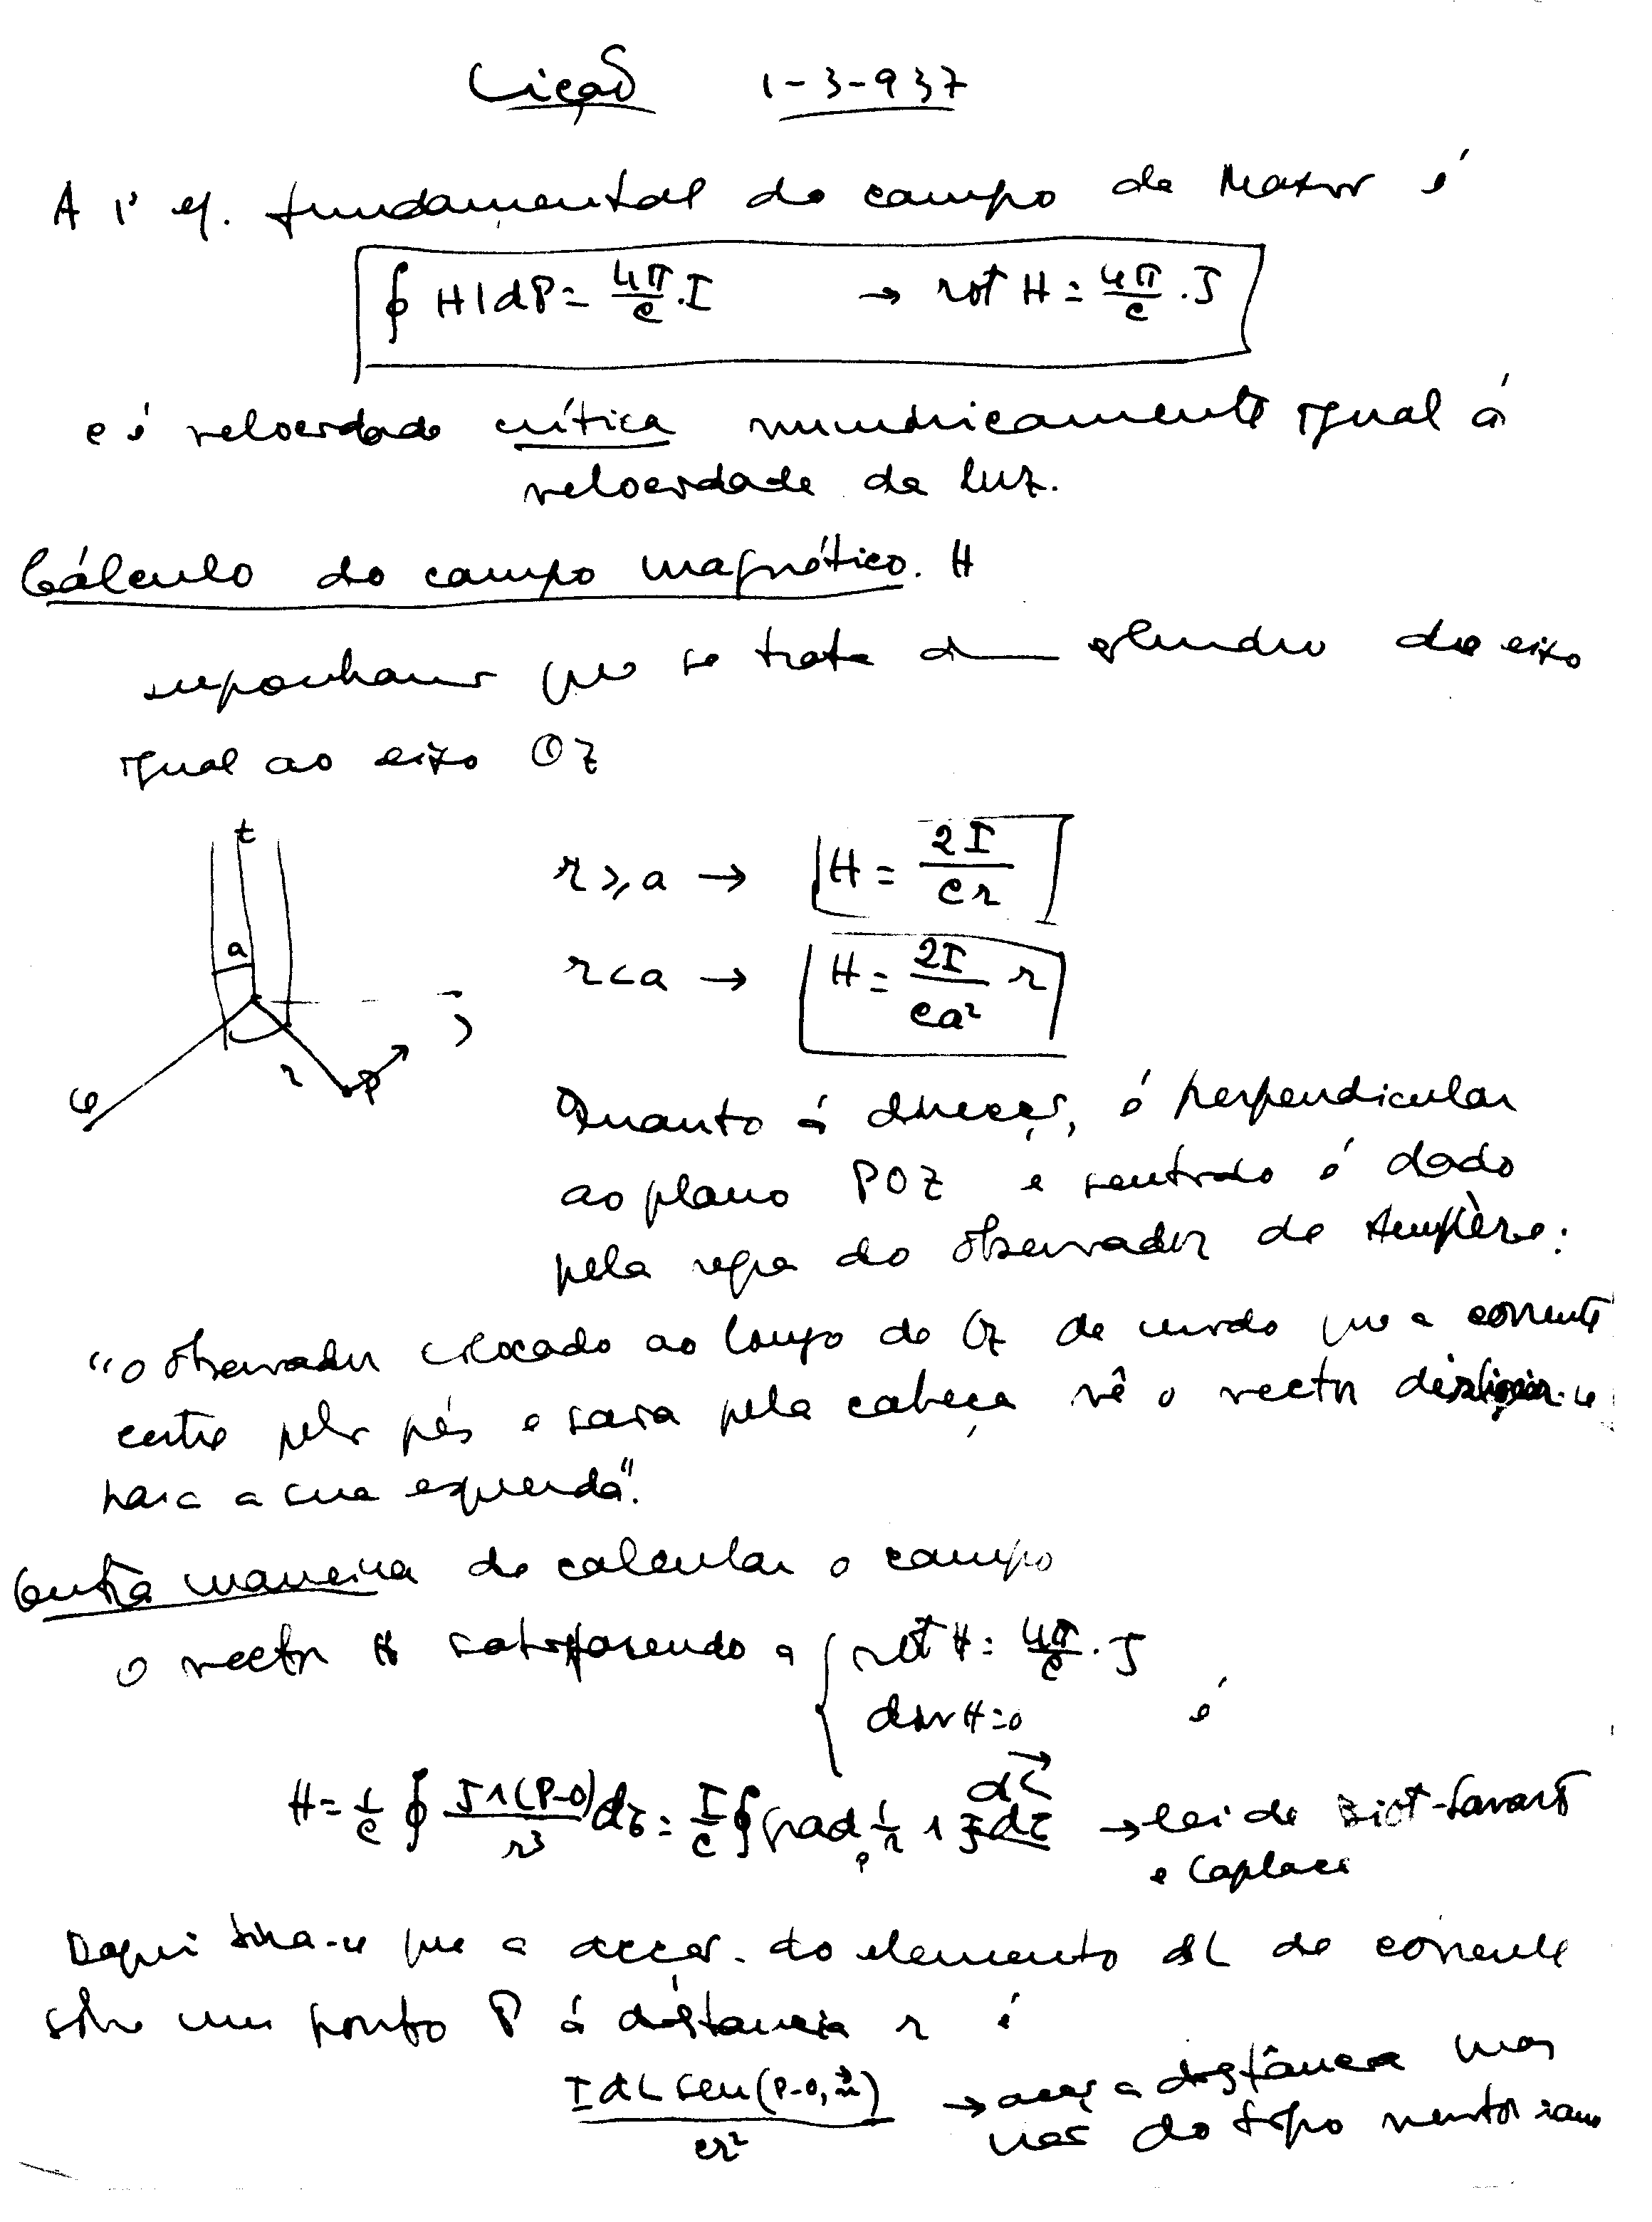 Lição 1-3-937
A 1ª eq. fundamental do campo de Maxw é
∮ H | dP = 4π/c . I → rot H = 4π/c . J
c é velocidade crítica numericamente igual á
velocidade da luz.
Cálculo do campo magnético. H
suponhamos que se trata dum cilindro de eixo
igual ao eixo Oz
z
r ⩾ a → H = 2I/cr
a
r < a → H = 2I/ca² r
r P
Quanto á direcção, é perpendicular
ao plano POZ e sentido é dado
pela regra do observador de Ampère:
"o observador colocado ao longo de Oz de modo que a corrente
entre pelos pés e saia pela cabeça vê o vector
para a sua esquerda".
Outra maneira de calcular o campo
o vector H satisfazendo a { rot H = 4π/c . J
div H = 0 é
H = 1/c ∮ J∧(P-O)/r³ dτ = I/c ∮ grad_P 1/r ∧ dL → lei de Biot-Savart
e Laplace
Daqui tira-se que a acção do elemento dL de corrente
sobre um ponto P á distancia r é
I dL sen(P-O, n)/cr² → acção a distância mas
não do tipo newtoniano